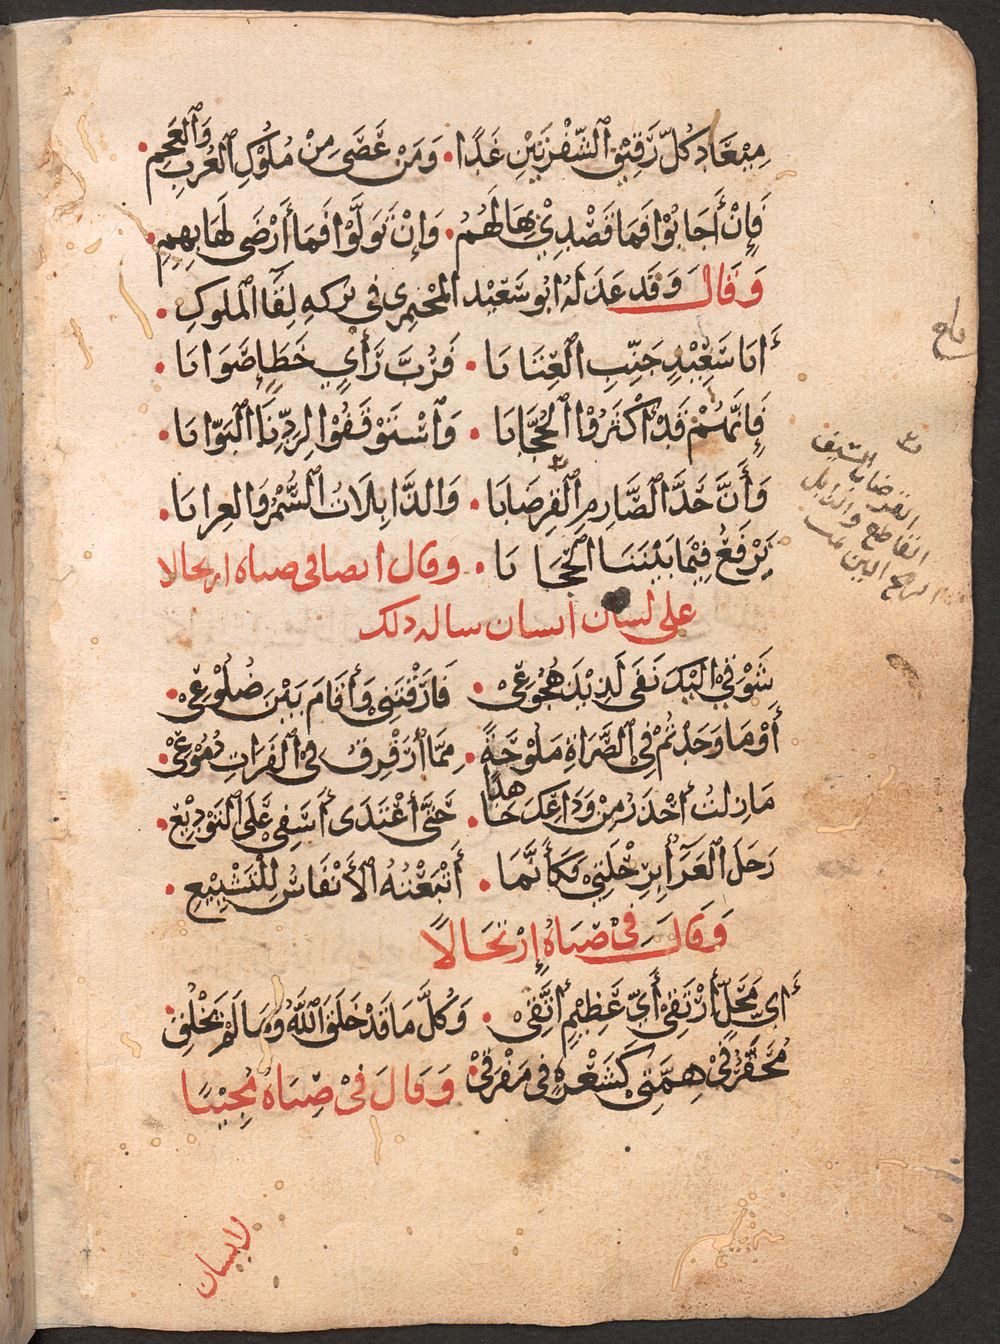 مِيْعَادُ كُلِّ رَقِيْقِ ٱلشَّفْرَتَيْنِ غَدًا • وَمَنْ عَصَى مِنْ مُلُوْكِ ٱلْعُرْبِ وَٱلْعَجَمِ •
فَإِنْ أَجَابُوْا فَمَا قَصْدِيْ بِهَا لَهُمُ • وَإِنْ تَوَلَّوْا فَمَا أَرْضَى لَهَا بِهِمِ •
وَقَالَ وَقَد عَذَلَهُ ابُو سَعِيْد المُخَيْمِرِى فى تركهِ لِقَا ٱلملوكِ •
أَبَا سَعِيْدٍ جَنِّبِ ٱلْعِتَابَا • فَرُبَّ رَأْيٍ خَطَإٍ صَوَابَا •
فَإِنَّهُمْ قَدْ أَكْثَرُوْا ٱلْحُجَّابَا • وَٱسْتَوْقَفُوْا لِرَدِّنَا ٱلْبَوَّابَا •
وَأَنَّ حَدَّ ٱلصَّارِمِ ٱلْقِرضَابَا • وَالذَّابِلَاتُ ٱلسُّمْرُ وَالعِرابَا •
يَرْفَعُ فِيْمَا بَيْنَنَا ٱلْحِجَابَا • وقال ايضا فى صباه ارتجالا
على لسان انسان ساله ذلك
شَوْقِيْ الَيْكَ نَفَى لَذِيْذَ هُجُوْعِيْ • فَارَقْتَنِىْ وَأَقَامَ بَيْنَ ضُلُوْعِيْ •
أَوْ مَا وَجَدْتُمْ فِى ٱلصَّرَاةِ مَلُوْحَةً • مِمَّا أُرَقْرِقُ فى ٱلفَرَاتِ دُمُوْعِىْ •
مَا زِلْتُ أَحْذَرُ مِنْ وَدَاعِكَ جَا هدًا • حَتَّى أغْتَدَى أَسَفِيْ عَلَى ٱلتَّوْدِيْعِ •
رَحَلَ ٱلْعَزَآءُ بِرِحْلَتِيْ فَكَأَنَّمَا • أَتْبَعْتُهُ ٱلأَنْفَاسَ لِلتَّشْيِيْعِ •
وَقَالَ فِى صِبَاهُ إِرْتِجَالًا
أَىَّ مَحَلٍّ أَرْتَقِىْ أَيَّ عَظِيْمٍ أَتَّقِىْ • وَكُلُّ مَا قَدْ خَلَقَ ٱللَّهُ وَمَا لَمْ يَخْلُقِ •
مُحْتَقَرٌ فِيْ هِمَّتِىْ كَشَعْرَةٍ فِى مَفْرِقِىْ • وَقَالَ فِىْ صِبَاهُ مُجِيْبًا
لانسان
القرضاب السيف
القاطع والذابل
الرمح